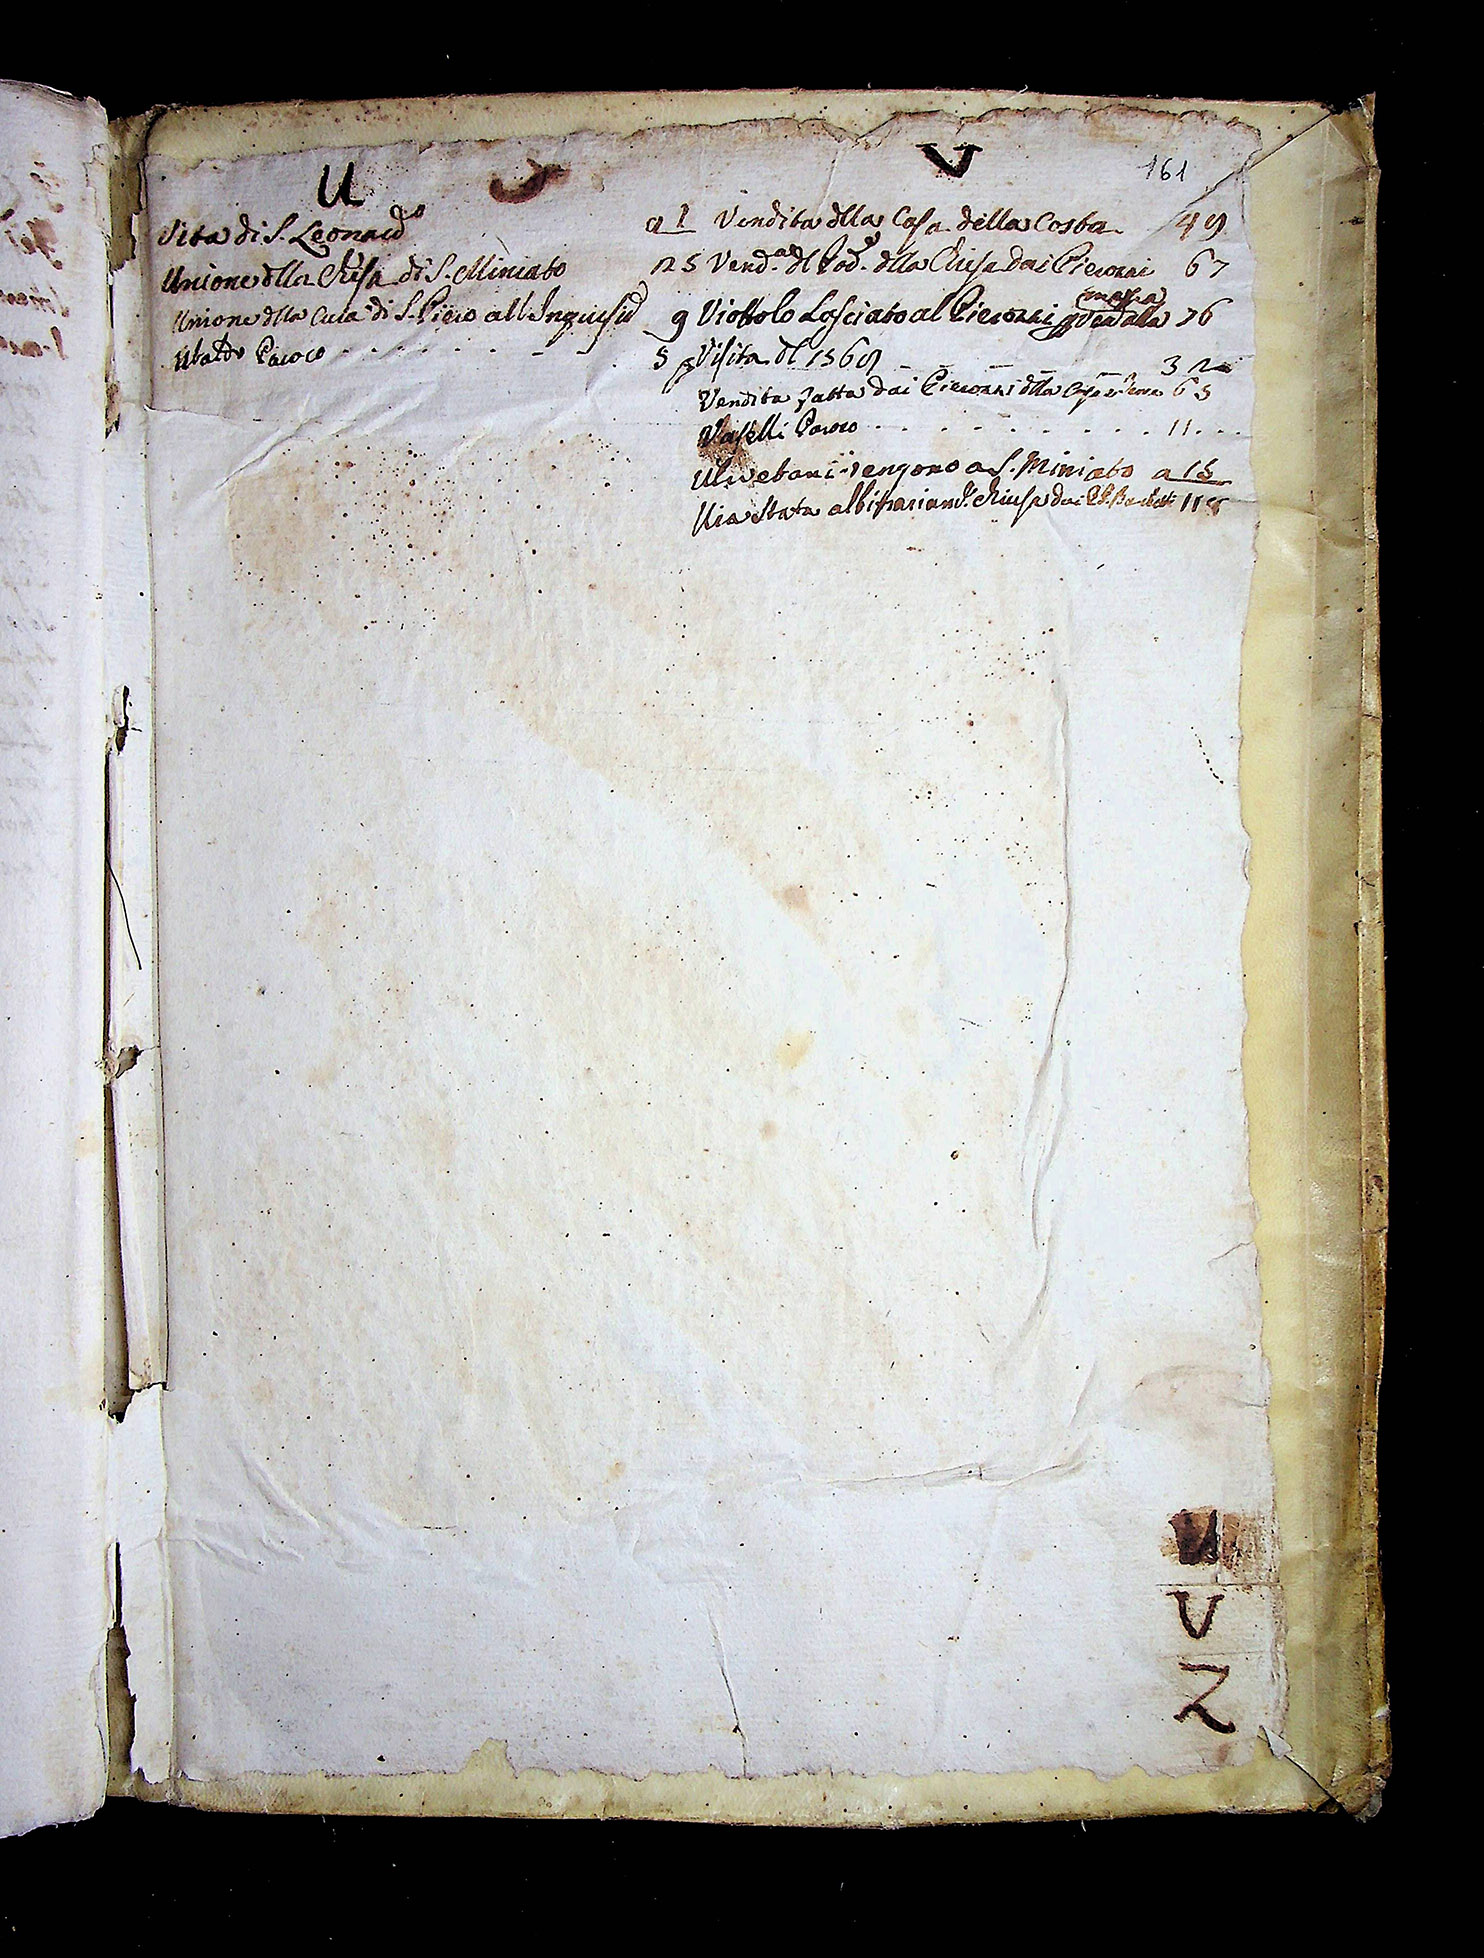 161
U
Vita di S. Leonardo 91
Unione dlla Chiesa di S. Miniato 25
Unione dlla Cura di S. Piero all' 9
Ubaldo Paroco - - - - - - 5
V
Vendita dlla Casa della Costa 49
Vend.a dl Pod.e dlla Chiesa dai Pierozzi 67
Viottolo Lasciato al Pierozzi 76
Visita dl 1569 - - - - - 32
Vendita fatta dai Pierozzi dlla 63
Vaselli Paroco - - - - - - - - - 11 - - -
Ulivetani vengono a S. Miniato a 15
Via stata chiusa dai
U
V
Z